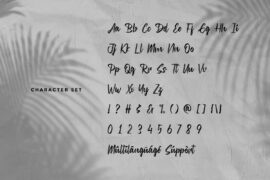 CHARACTER SET
Aa Bb Cc Dd Ee Ff Gg Hh Ii
Jj Kk Ll Mm Nn Oo
Pp Qq Rr Ss Tt Uu Vv
Ww Xx Yy Zz
! ? # $ & % ( ) @ [ ] { \ }
0 1 2 3 4 5 6 7 8 9
Multilanguage Support